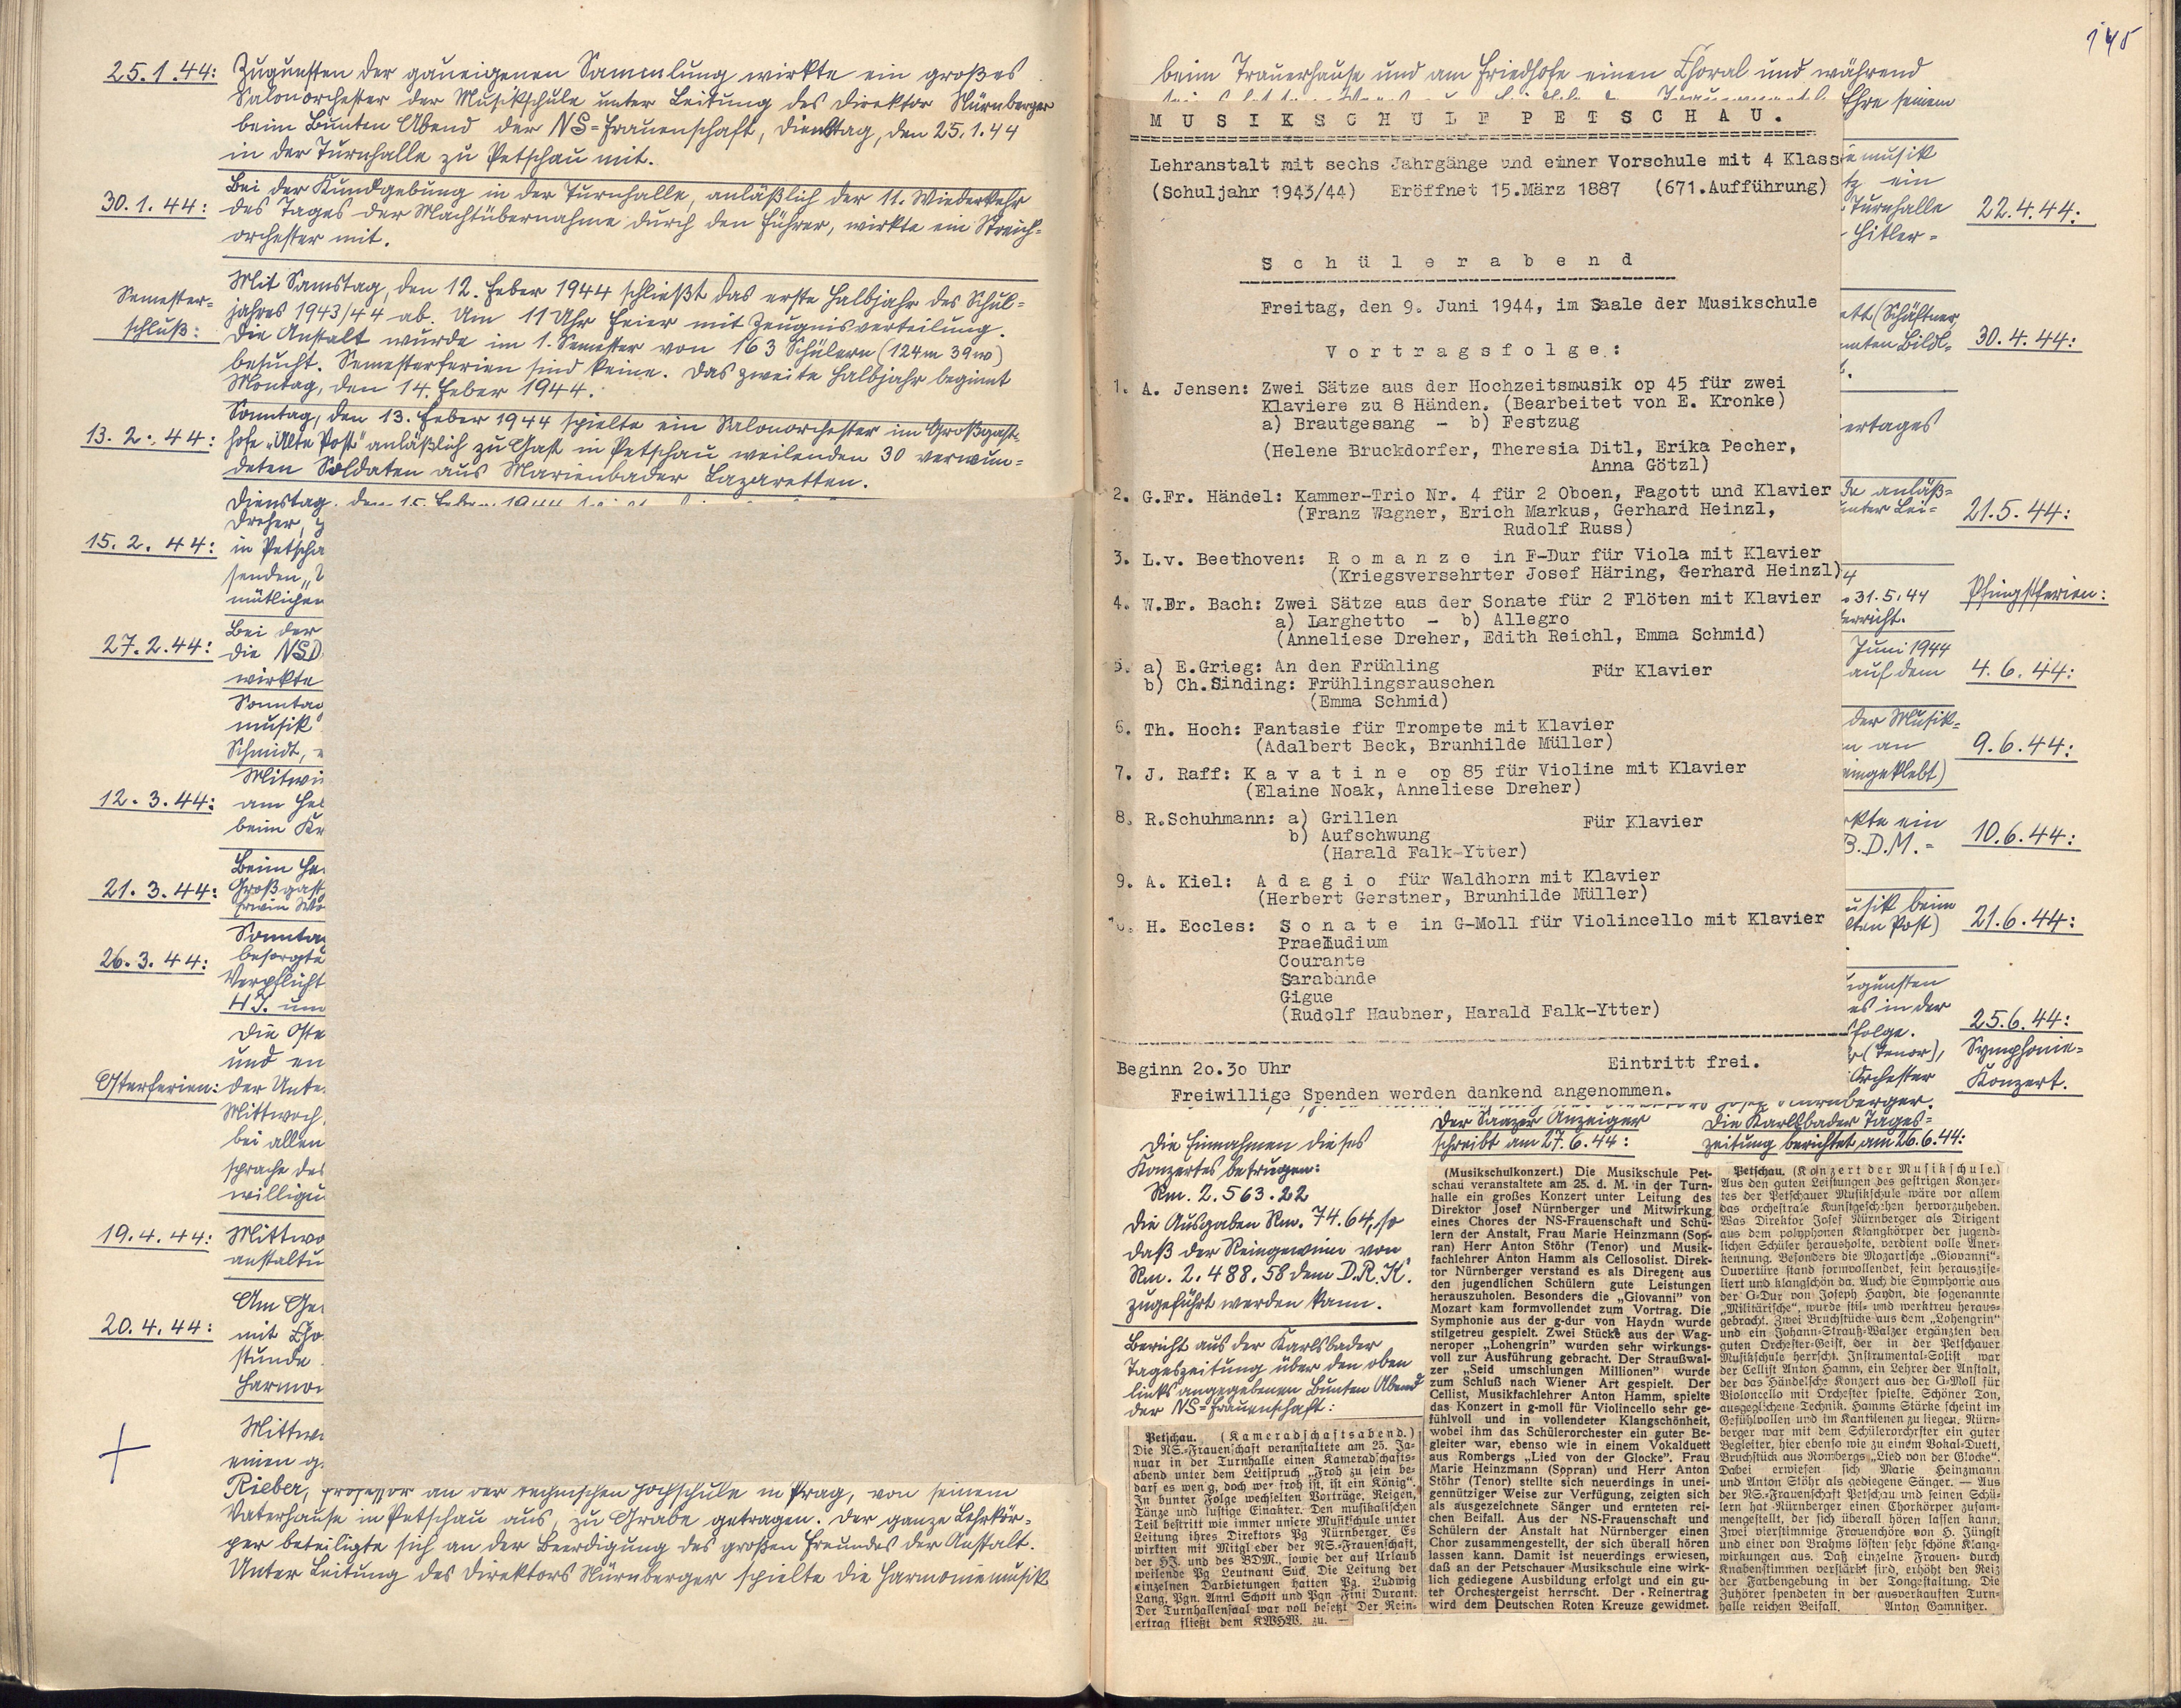 25.1.44: Zugunsten der gaueigenen Sammlung wirkte ein großes
Salonorchester der Musikschule unter Leitung des Direktor Nürnberger
beim Bunten Abend der NS=Frauenschaft, Dienstag, den 25.1.44
in der Turnhalle zu Petschau mit.
Bei der Kundgebung in der Turnhalle, anläßlich der 11. Wiederkehr
30.1.44: des Tages der Machtübernahme durch den Führer, wirkte ein Streich=
orchester mit.
Semester=
schluß:
Mit Samstag, den 12. Feber 1944 schließt das erste Halbjahr des Schul=
jahres 1943/44 ab. Um 11 Uhr Feier mit Zeugnisverteilung.
Die Anstalt wurde im 1. Semester von 163 Schülern (124m 39w)
besucht. Semesterferien sind keine. Das zweite Halbjahr beginnt
Montag, den 14. Feber 1944.
Sonntag, den 13. Feber 1944 spielte ein Salonorchester im Großgast=
13.2.44: hofe „Alte Post" anläßlich zu Gast in Petschau weilenden 30 verwun=
deten Soldaten aus Marienbader Lazaretten.
Dienstag, den 15. Feber 1944
Dreher,
15.2.44: in Petscha
senden
mütlichen
Bei der
27.2.44: die NSD
wirkte
Sonntag
musik
Schmidt,
Mitwi
12.3.44: am Hel
beim Kr
Beim He
21.3.44: Großgast
Erwin
Sonntag
26.3.44: besorgte
Verpflicht
HJ. und
Die Oste
und en
Osterferien: der Unte
Mittwoch,
bei allen
sprache des
willigu
19.4.44: Mittwo
anstaltu
Am Ge
20.4.44: mit Cho
stunde
Harmon
Mittwo
einen g
Rieber, Professor an der technischen Hochschule in Prag, von seinem
Vaterhause in Petschau aus, zu Grabe getragen. Der ganze Lehrkör=
per beteiligte sich an der Beerdigung des großen Freundes der Anstalt.
Unter Leitung des Direktors Nürnberger spielte die Harmoniemusik
145
beim Trauerhause und am Friedhofe einen Choral und während
Ehre seinem
MUSIKSCHULE PETSCHAU.
Lehranstalt mit sechs Jahrgänge und einer Vorschule mit 4 Klass
(Schuljahr 1943/44) Eröffnet 15.März 1887 (671.Aufführung)
Schülerabend
Freitag, den 9. Juni 1944, im Saale der Musikschule
Vortragsfolge:
1. A. Jensen: Zwei Sätze aus der Hochzeitsmusik op 45 für zwei
Klaviere zu 8 Händen. (Bearbeitet von E. Kronke)
a) Brautgesang - b) Festzug
(Helene Bruckdorfer, Theresia Ditl, Erika Pecher,
Anna Götzl)
2. G.Fr. Händel: Kammer-Trio Nr. 4 für 2 Oboen, Fagott und Klavier
(Franz Wagner, Erich Markus, Gerhard Heinzl,
Rudolf Russ)
3. L.v. Beethoven: Romanze in F-Dur für Viola mit Klavier
(Kriegsversehrter Josef Häring, Gerhard Heinzl)
4. W.Fr. Bach: Zwei Sätze aus der Sonate für 2 Flöten mit Klavier
a) Larghetto - b) Allegro
(Anneliese Dreher, Edith Reichl, Emma Schmid)
5. a) E.Grieg: An den Frühling Für Klavier
b) Ch.Sinding: Frühlingsrauschen
(Emma Schmid)
6. Th. Hoch: Fantasie für Trompete mit Klavier
(Adalbert Beck, Brunhilde Müller)
7. J. Raff: Kavatine op 85 für Violine mit Klavier
(Elaine Noak, Anneliese Dreher)
8. R.Schuhmann: a) Grillen Für Klavier
b) Aufschwung
(Harald Falk-Ytter)
9. A. Kiel: Adagio für Waldhorn mit Klavier
(Herbert Gerstner, Brunhilde Müller)
10. H. Eccles: Sonate in G-Moll für Violincello mit Klavier
Praeludium
Courante
Sarabande
Gigue
(Rudolf Haubner, Harald Falk-Ytter)
Beginn 2o.3o Uhr Eintritt frei.
Freiwillige Spenden werden dankend angenommen.
musik
ein
Turnhalle 22.4.44:
Hitler=
(Schäftner
Bildl= 30.4.44:
ertages
anläß=
unter Lei= 21.5.44:
31.5.44 Pfingstferien:
Juni 1944
auf dem 4.6.44:
der Musik=
an 9.6.44:
eingeklebt)
ein
B.D.M.= 10.6.44:
musik beim
Post) 21.6.44:
zugunsten
es in der 25.6.44:
folge.
(Tenor), Symphonie=
Orchester Konzert.
Nürnberger.
Die Einnahmen dieses
Konzertes betrugen:
Rm. 2.563.22
Die Ausgaben Rm. 74.64, so
daß der Reingewinn von
Rm. 2.488.58 dem D.R.K.
zugeführt werden kann.
Bericht aus der Karlsbader
Tageszeitung über den oben
links angegebenen Bunten Abend
der NS=Frauenschaft:
Petschau. (Kameradschaftsabend.)
Die NS.=Frauenschaft veranstaltete am 25. Ja-
nuar in der Turnhalle einen Kameradschafts-
abend unter dem Leitspruch „Froh zu sein be-
darf es wenig, doch wer froh ist, ist ein König".
In bunter Folge wechselten Vorträge, Reigen,
Tänze und lustige Einakter. Den musikalischen
Teil bestritt wie immer unsere Musikschule unter
Leitung ihres Direktors Pg Nürnberger. Es
wirkten mit Mitglieder der NS.-Frauenschaft,
der HJ. und des BDM., sowie der auf Urlaub
weilende Pg Leutnant Süd. Die Leitung der
einzelnen Darbietungen hatten Pg. Ludwig
Lang, Pgn. Annl Schott und Pgn Fini Durant.
Der Turnhallensaal war voll besetzt Der Rein-
ertrag fließt dem KWHW. zu. —
Der Saazer Anzeiger
schreibt am 27.6.44:
(Musikschulkonzert.) Die Musikschule Pet-
schau veranstaltete am 25. d. M. in der Turn-
halle ein großes Konzert unter Leitung des
Direktor Josef Nürnberger und Mitwirkung
eines Chores der NS-Frauenschaft und Schü-
lern der Anstalt, Frau Marie Heinzmann (Sop-
ran) Herr Anton Stöhr (Tenor) und Musik-
fachlehrer Anton Hamm als Cellosolist. Direk-
tor Nürnberger verstand es als Diregent aus
den jugendlichen Schülern gute Leistungen
herauszuholen. Besonders die „Giovanni" von
Mozart kam formvollendet zum Vortrag. Die
Symphonie aus der g-dur von Haydn wurde
stilgetreu gespielt. Zwei Stücke aus der Wag-
neroper „Lohengrin" wurden sehr wirkungs-
voll zur Ausführung gebracht. Der Straußwal-
zer „Seid umschlungen Millionen" wurde
zum Schluß nach Wiener Art gespielt. Der
Cellist, Musikfachlehrer Anton Hamm, spielte
das Konzert in g-moll für Violincello sehr ge-
fühlvoll und in vollendeter Klangschönheit,
wobei ihm das Schülerorchester ein guter Be-
gleiter war, ebenso wie in einem Vokalduett
aus Rombergs „Lied von der Glocke". Frau
Marie Heinzmann (Sopran) und Herr Anton
Stöhr (Tenor) stellte sich neuerdings in unei-
gennütziger Weise zur Verfügung, zeigten sich
als ausgezeichnete Sänger und ernteten rei-
chen Beifall. Aus der NS-Frauenschaft und
Schülern der Anstalt hat Nürnberger einen
Chor zusammengestellt, der sich überall hören
lassen kann. Damit ist neuerdings erwiesen,
daß an der Petschauer Musikschule eine wirk-
lich gediegene Ausbildung erfolgt und ein gu-
ter Orchestergeist herrscht. Der Reinertrag
wird dem Deutschen Roten Kreuze gewidmet.
Die Karlsbader Tages=
zeitung berichtet am 26.6.44:
Petschau. (Konzert der Musikschule.)
Aus den guten Leistungen des gestrigen Konzer-
tes der Petschauer Musikschule wäre vor allem
das orchestrale Kunstgeschehen hervorzuheben.
Was Direktor Josef Nürnberger als Dirigent
aus dem polyphonen Klangkörper der jugend-
lichen Schüler herausholte, verdient volle Aner-
kennung. Besonders die Mozartsche „Giovanni"-
Ouvertüre stand formvollendet, fein herauszise-
liert und klangschön da. Auch die Symphonie aus
der G-Dur von Joseph Haydn, die sogenannte
„Militärische", wurde stil- und werktreu heraus-
gebracht. Zwei Bruchstücke aus dem „Lohengrin"
und ein Johann-Strauß-Walzer ergänzten den
guten Orchester-Geist, der in der Petschauer
Musikschule herrscht. Instrumental-Solist war
der Cellist Anton Hamm, ein Lehrer der Anstalt,
der das Händelsche Konzert aus der G-Moll für
Violoncello mit Orchester spielte. Schöner Ton,
ausgeglichene Technik. Hamms Stärke scheint im
Gefühlvollen und im Kantilenen zu liegen. Nürn-
berger war mit dem Schülerorchester ein guter
Begleiter, hier ebenso wie zu einem Vokal-Duett,
Bruchstück aus Rombergs „Lied von der Glocke".
Dabei erwiesen sich Marie Heinzmann
und Anton Stöhr als gediegene Sänger. — Aus
der NS.-Frauenschaft Petschau und seinen Schü-
lern hat Nürnberger einen Chorkörper zusam-
mengestellt, der sich überall hören lassen kann.
Zwei vierstimmige Frauenchöre von H. Jüngst
und einer von Brahms lösten sehr schöne Klang-
wirkungen aus. Daß einzelne Frauen- durch
Knabenstimmen verstärkt sind, erhöht den Reiz
der Farbengebung in der Tongestaltung. Die
Zuhörer spendeten in der ausverkauften Turn-
halle reichen Beifall. Anton Gamnitzer.